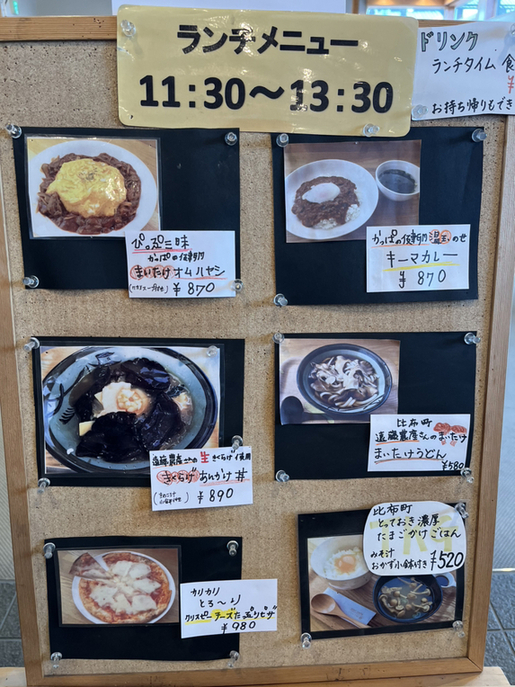 ランチメニュー
11:30～13:30
ドリンク
ランチタイム 食
¥
お持ち帰りもでき
ぴっぷ三味
かっぱの健卵
まいたけオムハヤシ
¥870
かっぱの健卵 温玉のせ
キーマカレー
¥870
遠藤農産さんの生きくらげ使用
きくらげあんかけ丼
¥890
比布町
遠藤農産さんのまいたけ
まいたけうどん
¥580
比布町
とっておき濃厚
たまごかけごはん
みそ汁
おかず小鉢付き ¥520
カリカリ
とろ～り
クリスピーチーズたっぷりピザ
¥980